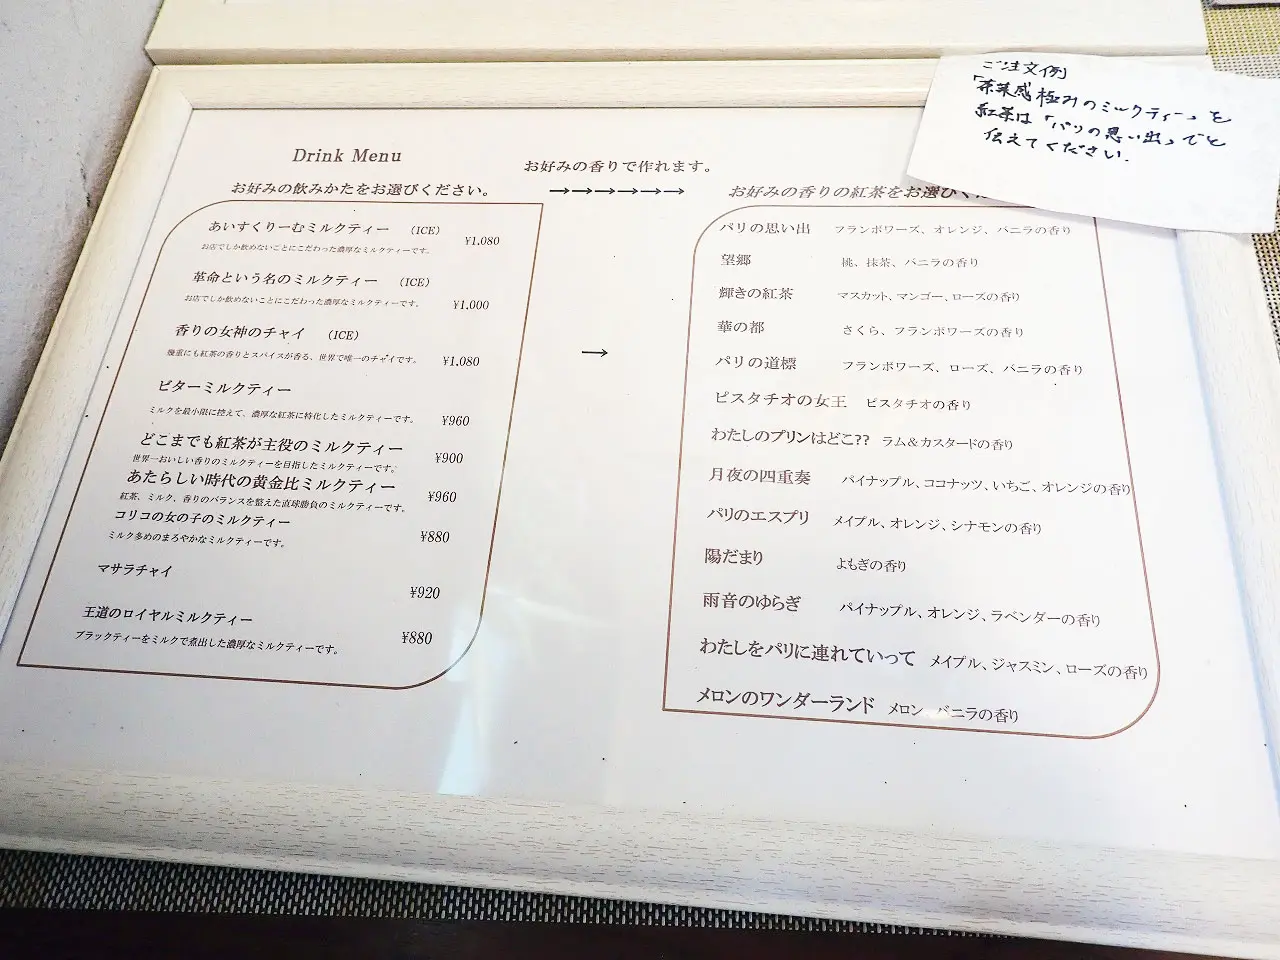 ご注文例
「茶葉感極みのミルクティー」を
紅茶は「パリの思い出」でと
伝えてください.
Drink Menu
お好みの飲みかたをお選びください。
お好みの香りで作れます。
→→→→→→
あいすくりーむミルクティー (ICE)
お店でしか飲めないことにこだわった濃厚なミルクティーです。
¥1.080
革命という名のミルクティー (ICE)
お店でしか飲めないことにこだわった濃厚なミルクティーです。
¥1.000
香りの女神のチャイ (ICE)
幾重にも紅茶の香りとスパイスが香る、世界で唯一のチャイです。
¥1.080
ビターミルクティー
ミルクを最小限に控えて、濃厚な紅茶に特化したミルクティーです。
¥960
どこまでも紅茶が主役のミルクティー
世界一おいしい香りのミルクティーを目指したミルクティーです。
¥900
あたらしい時代の黄金比ミルクティー
紅茶、ミルク、香りのバランスを整えた直球勝負のミルクティーです。
¥960
コリコの女の子のミルクティー
ミルク多めのまろやかなミルクティーです。
¥880
マサラチャイ
¥920
王道のロイヤルミルクティー
ブラックティーをミルクで煮出した濃厚なミルクティーです。
¥880
→
お好みの香りの紅茶をお選びく
パリの思い出 フランボワーズ、オレンジ、バニラの香り
望郷 桃、抹茶、バニラの香り
輝きの紅茶 マスカット、マンゴー、ローズの香り
華の都 さくら、フランボワーズの香り
パリの道標 フランボワーズ、ローズ、バニラの香り
ピスタチオの女王 ピスタチオの香り
わたしのプリンはどこ?? ラム&カスタードの香り
月夜の四重奏 パイナップル、ココナッツ、いちご、オレンジの香り
パリのエスプリ メイプル、オレンジ、シナモンの香り
陽だまり よもぎの香り
雨音のゆらぎ パイナップル、オレンジ、ラベンダーの香り
わたしをパリに連れていって メイプル、ジャスミン、ローズの香り
メロンのワンダーランド メロン、バニラの香り